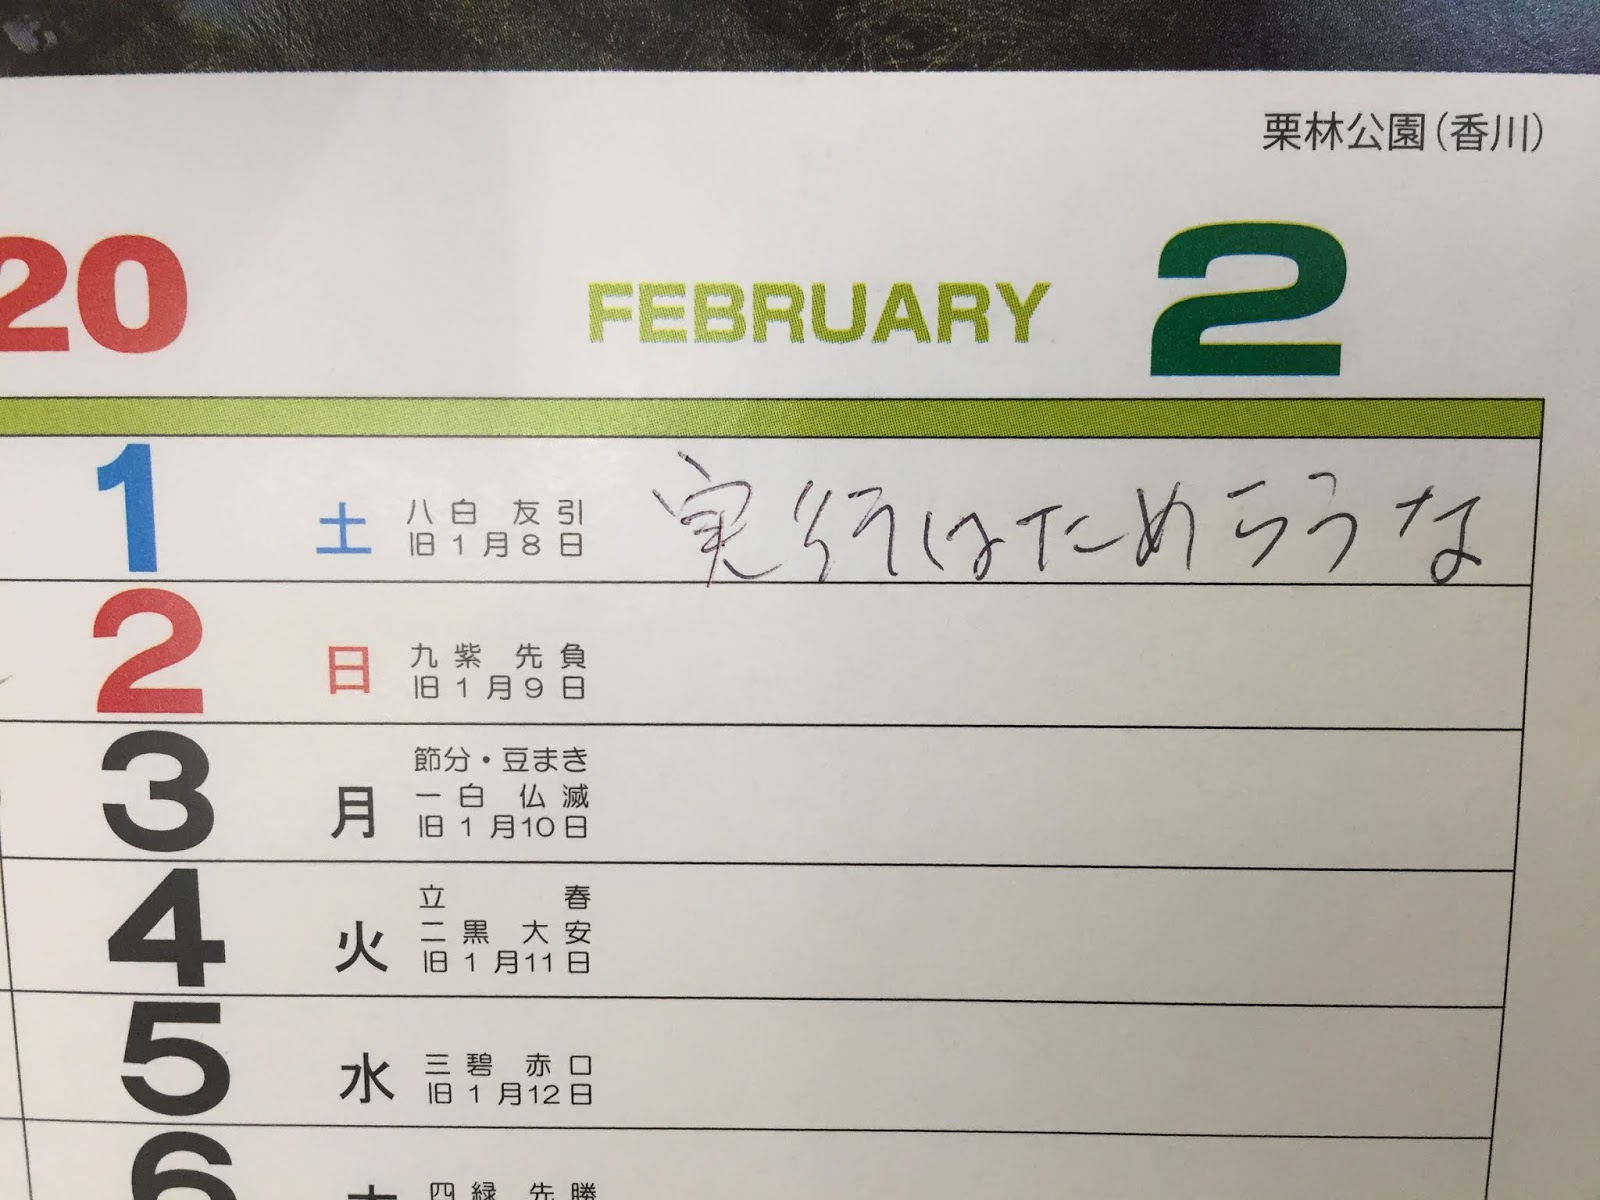 栗林公園(香川)
20 FEBRUARY 2
1 土 八白 友引 実行はためらうな
旧1月8日
2 日 九紫 先負
旧1月9日
節分・豆まき
3 月 一白 仏滅
旧1月10日
立春
4 火 二黒 大安
旧1月11日
5 水 三碧 赤口
旧1月12日
6 四緑 先勝